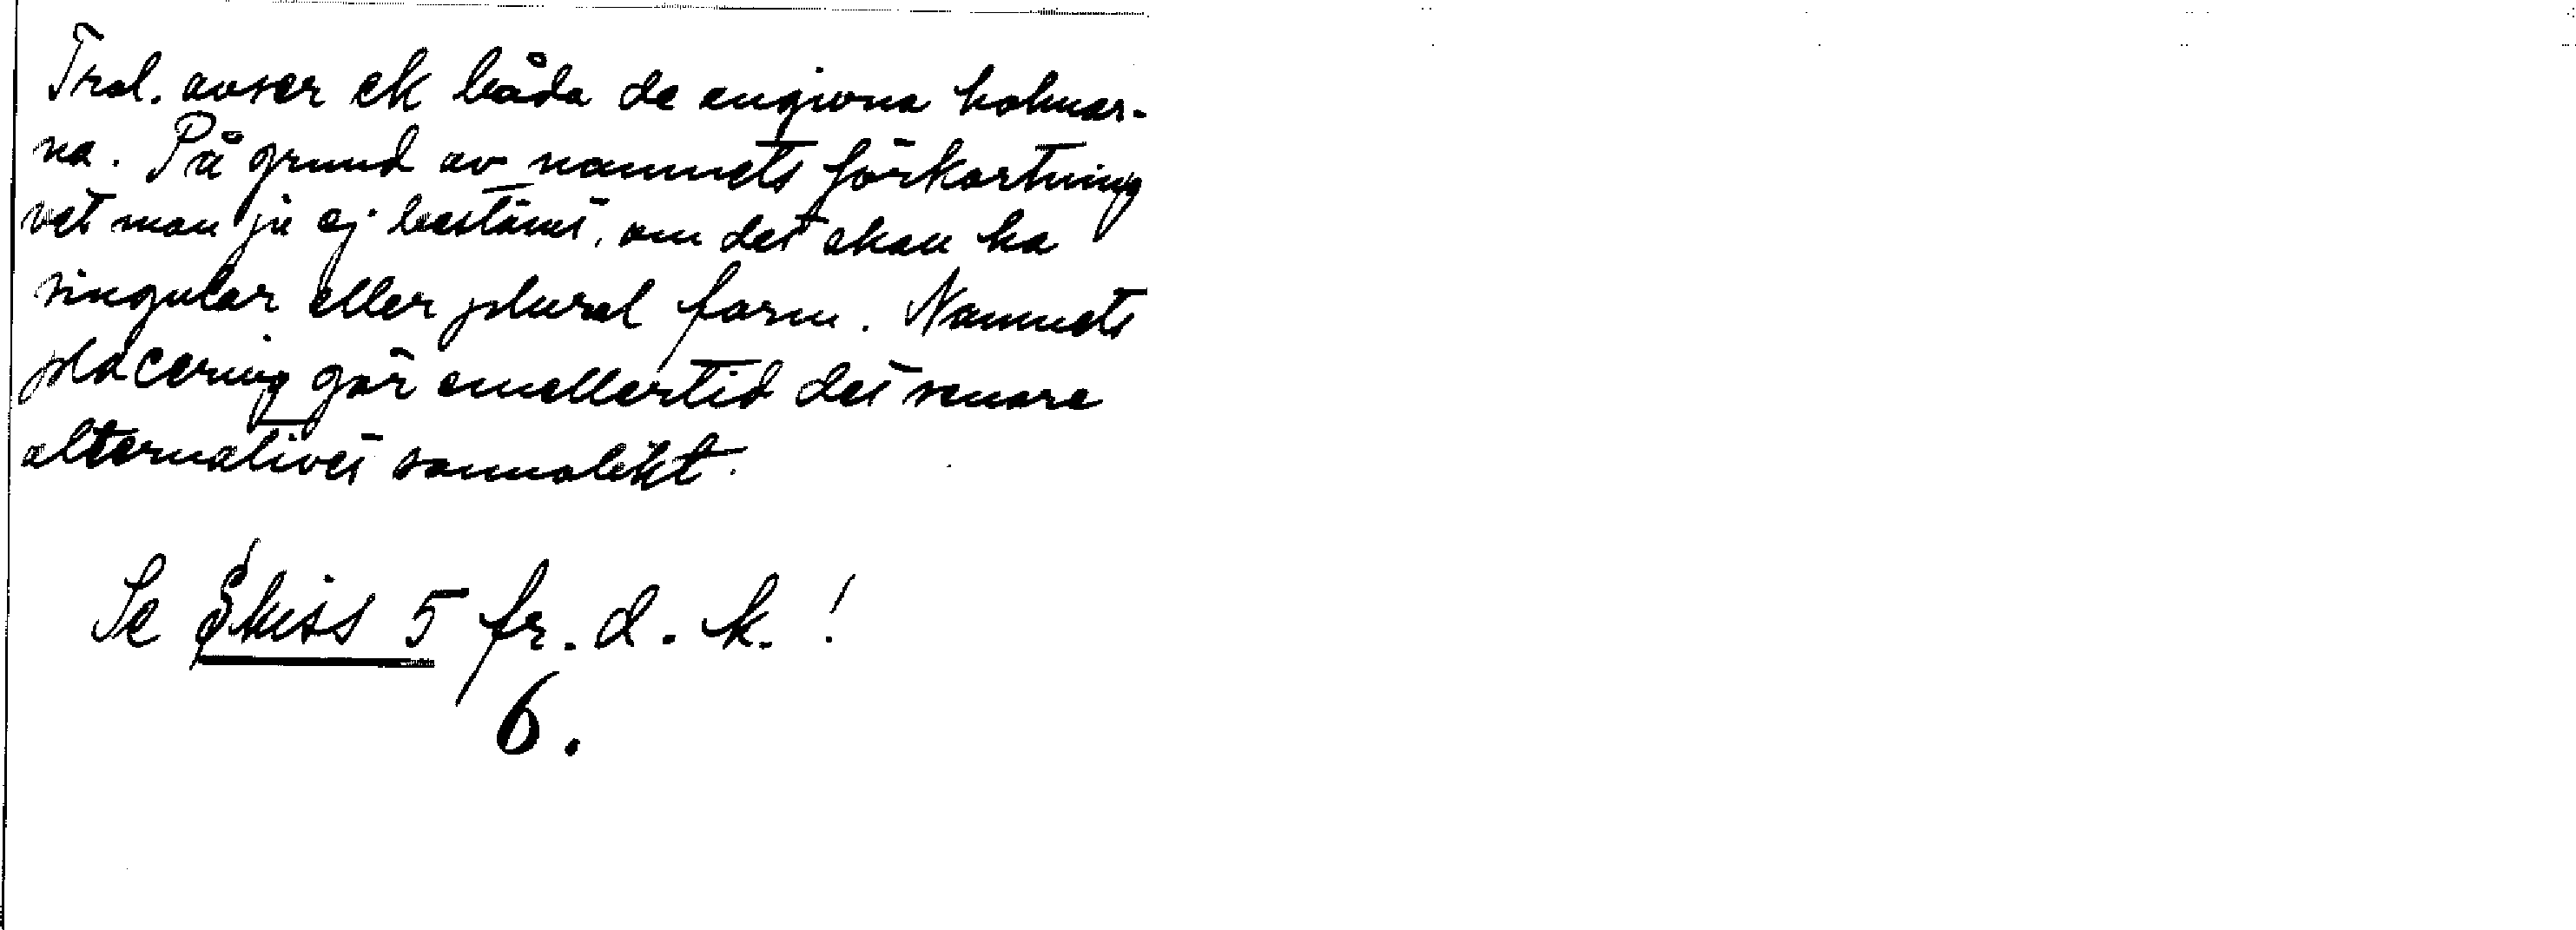 Trol. avser ek båda de angivna holmar-
na. På grund av namnets förkortning
vet man ju ej bestämt, om det skall ha
singular eller plural form. Namnets
placering gör emellertid det senare
alternativet sannolikt.
Se Skiss 5 fr. d. k.!
6.